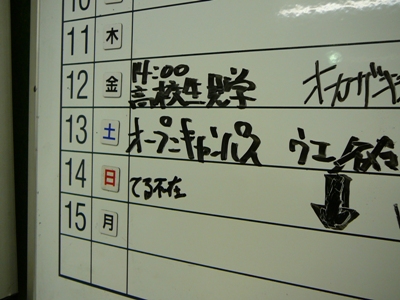 11 木
12 金 14:00 高校生見学 オカガキ
13 土 オープンキャンパス ウエ 不在
14 日 てる不在
15 月